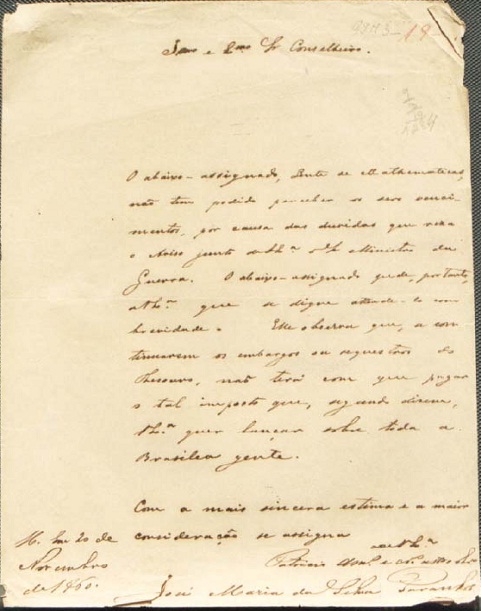 19
Illmo e Exmo Sr Conselheiro.
O abaixo-assignado, Lente de Mathematicas,
não tem podido perceber os seus venci-
mentos, por causa das duvidas que reza
o Aviso junto do Sr Ministro da
Guerra. O abaixo-assignado pede, portanto,
a V. Exa que se digne attende-lo com
brevidade. Elle observa que, a con-
tinuarem os embargos ou sequestros do
Thesouro, não terá com que pagar
o tal imposto que, segundo dizem,
V. Exa quer lançar sobre toda a
Brasilea gente.
Com a mais sincera estima e a maior
consideração se assigna
de V. Exa
Patricio
José Maria da Silva Paranhos
em 20 de
Novembro
de 1860.